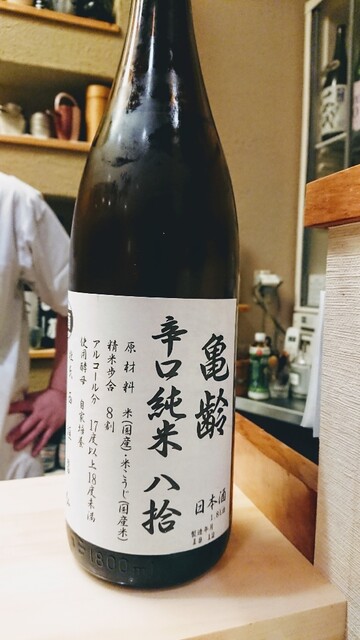 亀齢
辛口純米 八拾
原材料 米(国産)・米こうじ(国産米)
精米歩合 8割
アルコール分 17度以上18度未満
使用酵母 自家培養
日本酒
1.8L詰
製造年月
1800